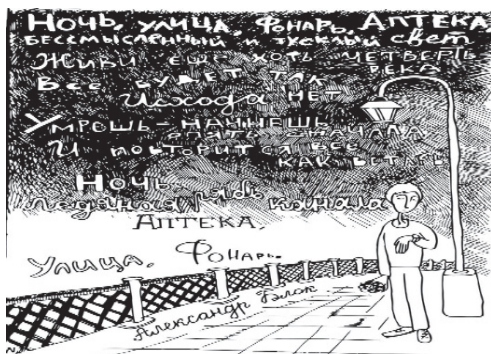 Ночь, улица, Фонарь, Аптека
бессмысленный и тусклый свет
Живи ещё хоть четверть
века
Все будет так
Исхода нет
Умрёшь - начнёшь
опять сначала
И повторится всё
как встарь
Ночь
ледяная рябь канала
Аптека,
Улица, Фонарь.
Александр Блок